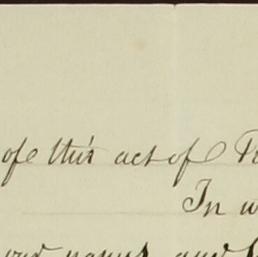 of this act of
In w
our names, and